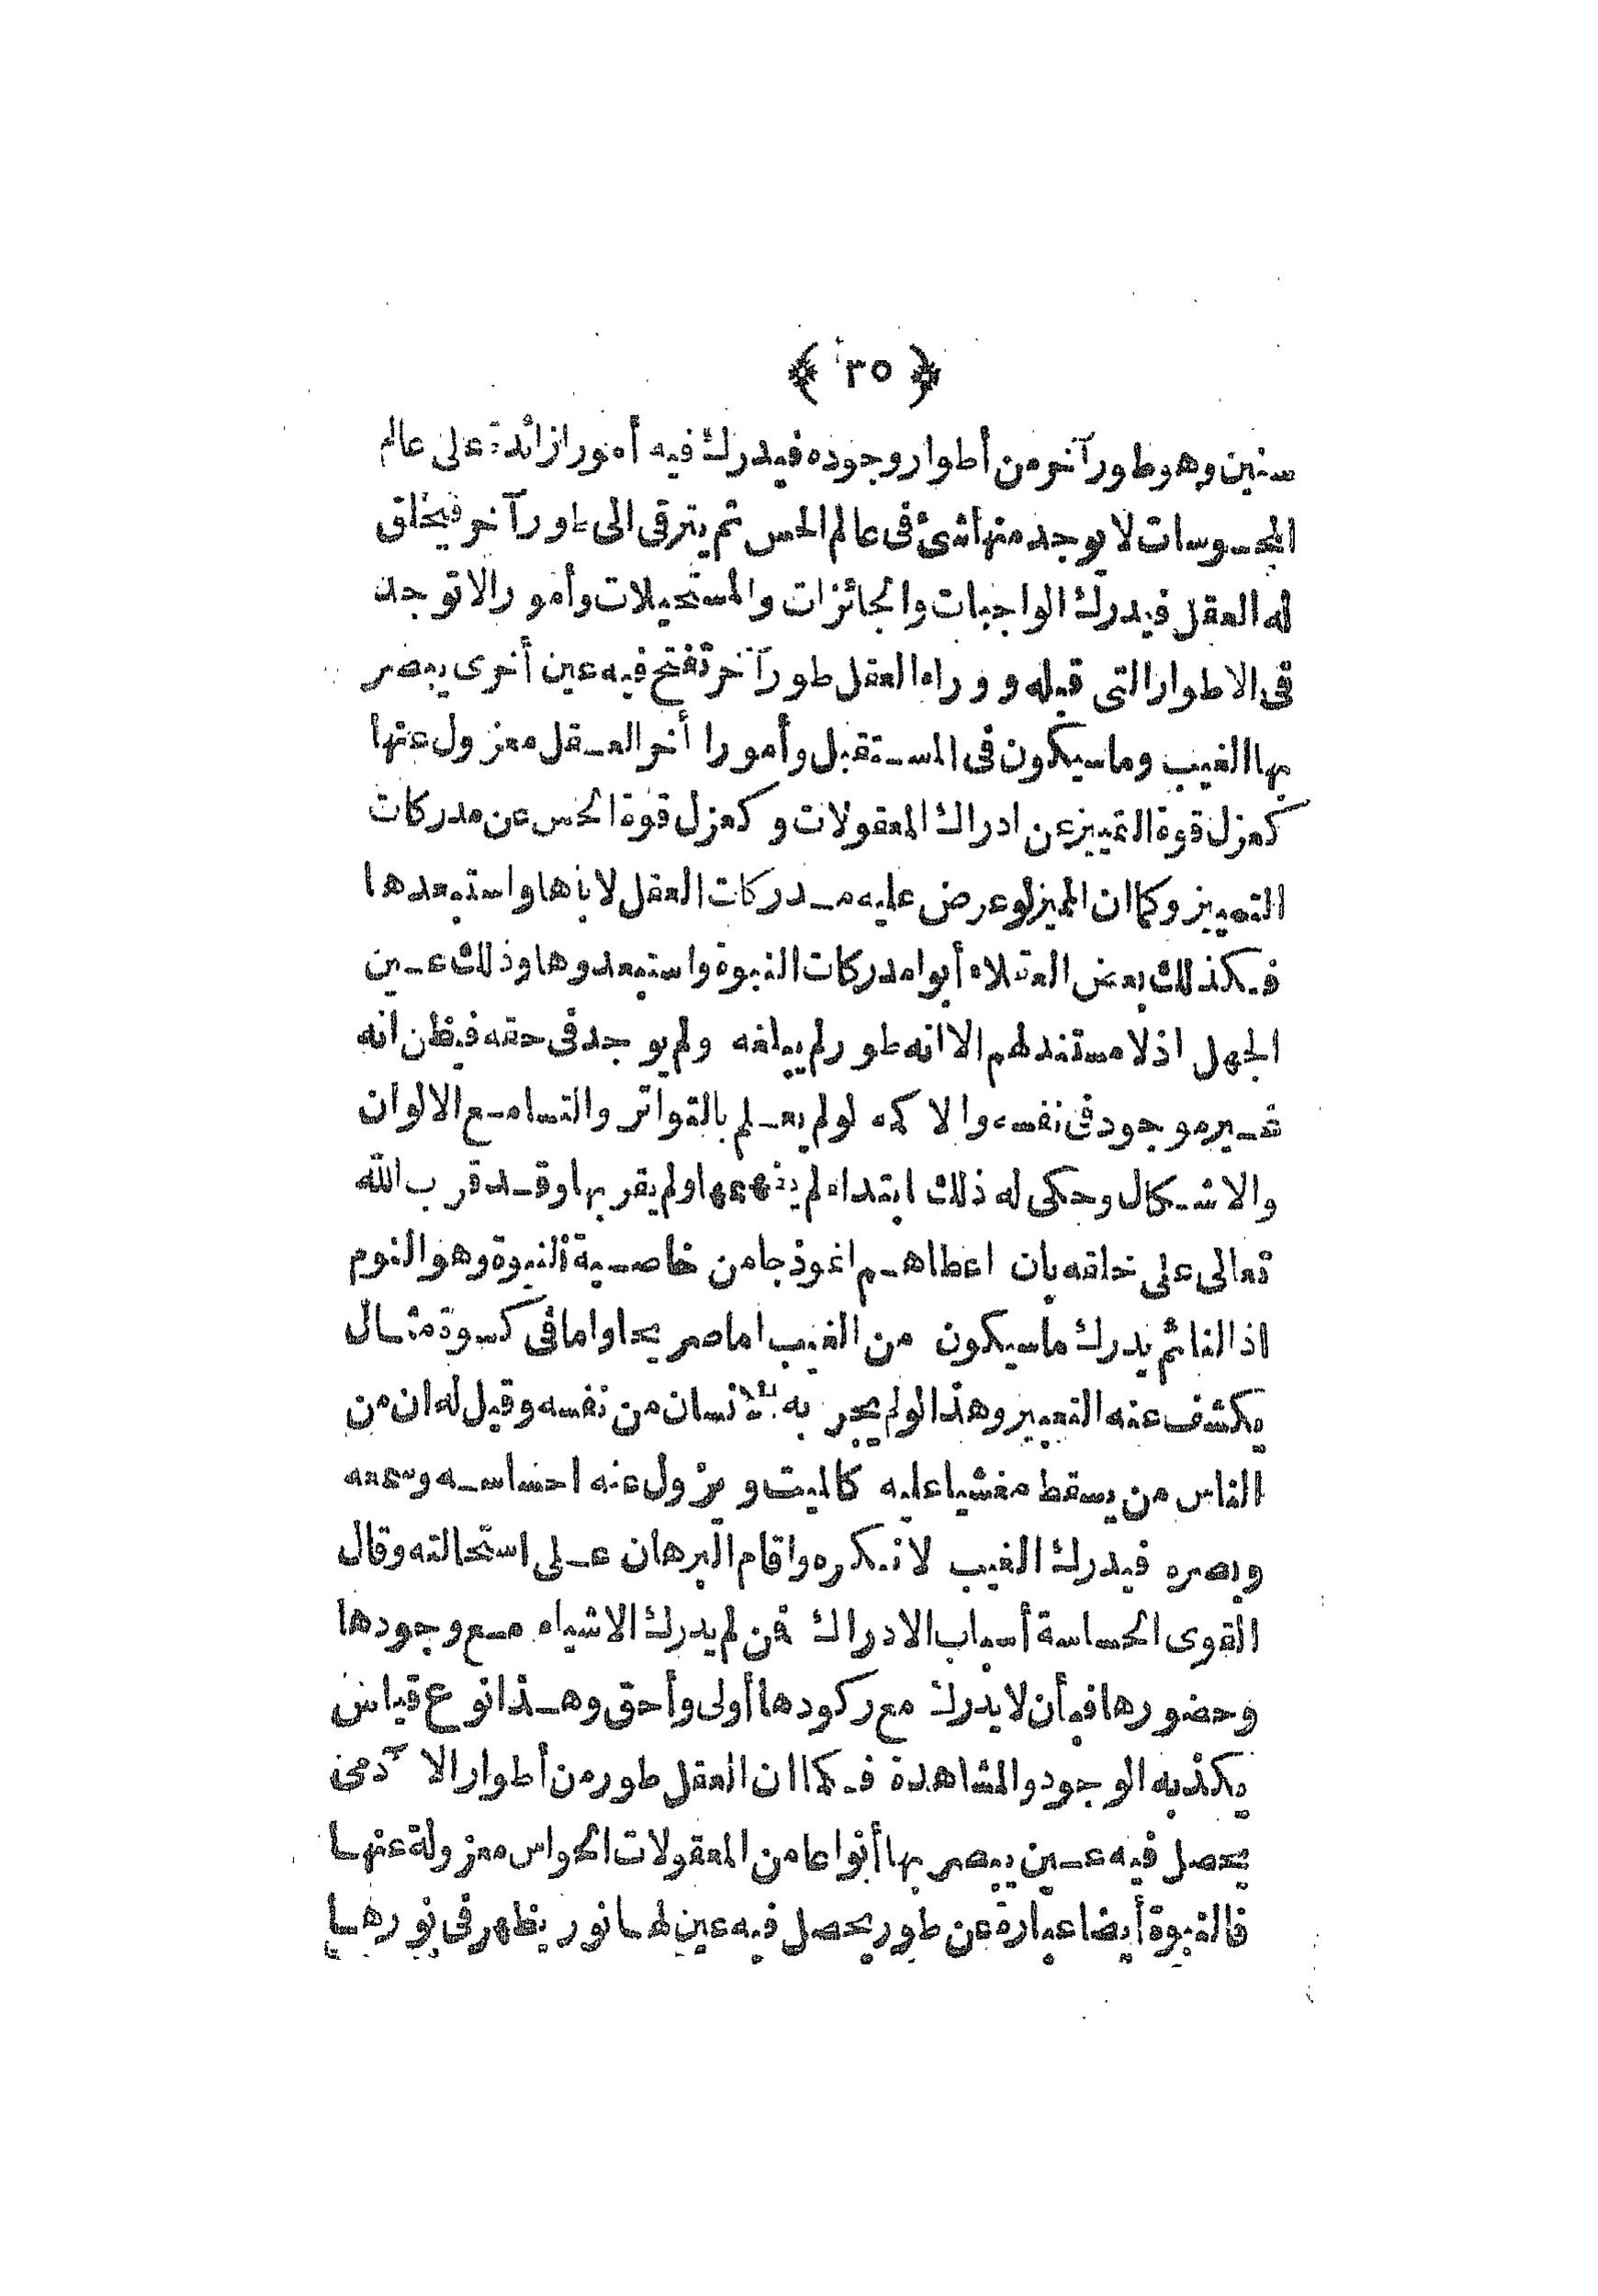 ﴿ ٢٥ ﴾
سنين وهو طور آخر من أطوار وجوده فيدرك فيه أمورا زائدة على عالم
المحسوسات لا يوجد منها شئ فى عالم الحس ثم يترقى الى طور آخر فيخلق
له العقل فيدرك الواجبات والجائزات والمستحيلات وأمورا لا توجد
فى الاطوار التى قبله و وراء العقل طور آخر تفتح فيه عين أخرى يبصر
بها الغيب وما سيكون فى المستقبل وأمورا أخر العقل معزول عنها
كعزل قوة التمييز عن ادراك المعقولات وكعزل قوة الحس عن مدركات
التمييز وكما ان المميز لو عرض عليه مدركات العقل لابأها واستبعدها
فكذلك بعض العقلاء أبوا مدركات النبوة واستبعدوها وذلك عين
الجهل اذ لا مستند لهم الا انه طور لم يبلغه ولم يوجد فى حقه فيظن انه
غير موجود فى نفسه والاكمه لو لم يعلم بالتواتر والتسامع الالوان
والاشكال وحكى له ذلك ابتداء لم يفهمها ولم يقر بها وقد قرب الله
تعالى على خلقه بان اعطاهم انموذجا من خاصية النبوة وهو النوم
اذ النائم يدرك ما سيكون من الغيب اما صريحا واما فى كسوة مثال
يكشف عنه التعبير وهذا لو لم يجر به الانسان من نفسه وقيل له ان من
الناس من يسقط مغشيا عليه كالميت ويزول عنه احساسه وسمعه
وبصره فيدرك الغيب لانكره واقام البرهان على استحالته وقال
القوى الحساسة أسباب الادراك فمن لم يدرك الاشياء مع وجودها
وحضورها فبأن لا يدرك مع ركودها أولى وأحق وهذا نوع قياس
يكذبه الوجود والمشاهدة فكما ان العقل طور من أطوار الآدمى
يحصل فيه عين يبصر بها أنواعا من المعقولات الحواس معزولة عنها
فالنبوة أيضا عبارة عن طور يحصل فيه عين لها نور يظهر فى نورها